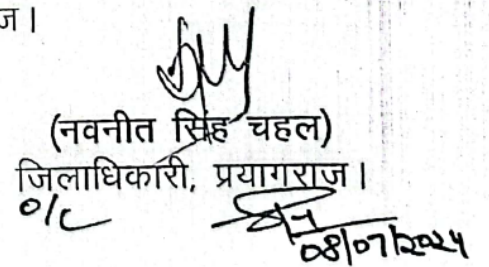 ज।
(नवनीत सिंह चहल)
जिलाधिकारी, प्रयागराज।
O/C
08/07/2024